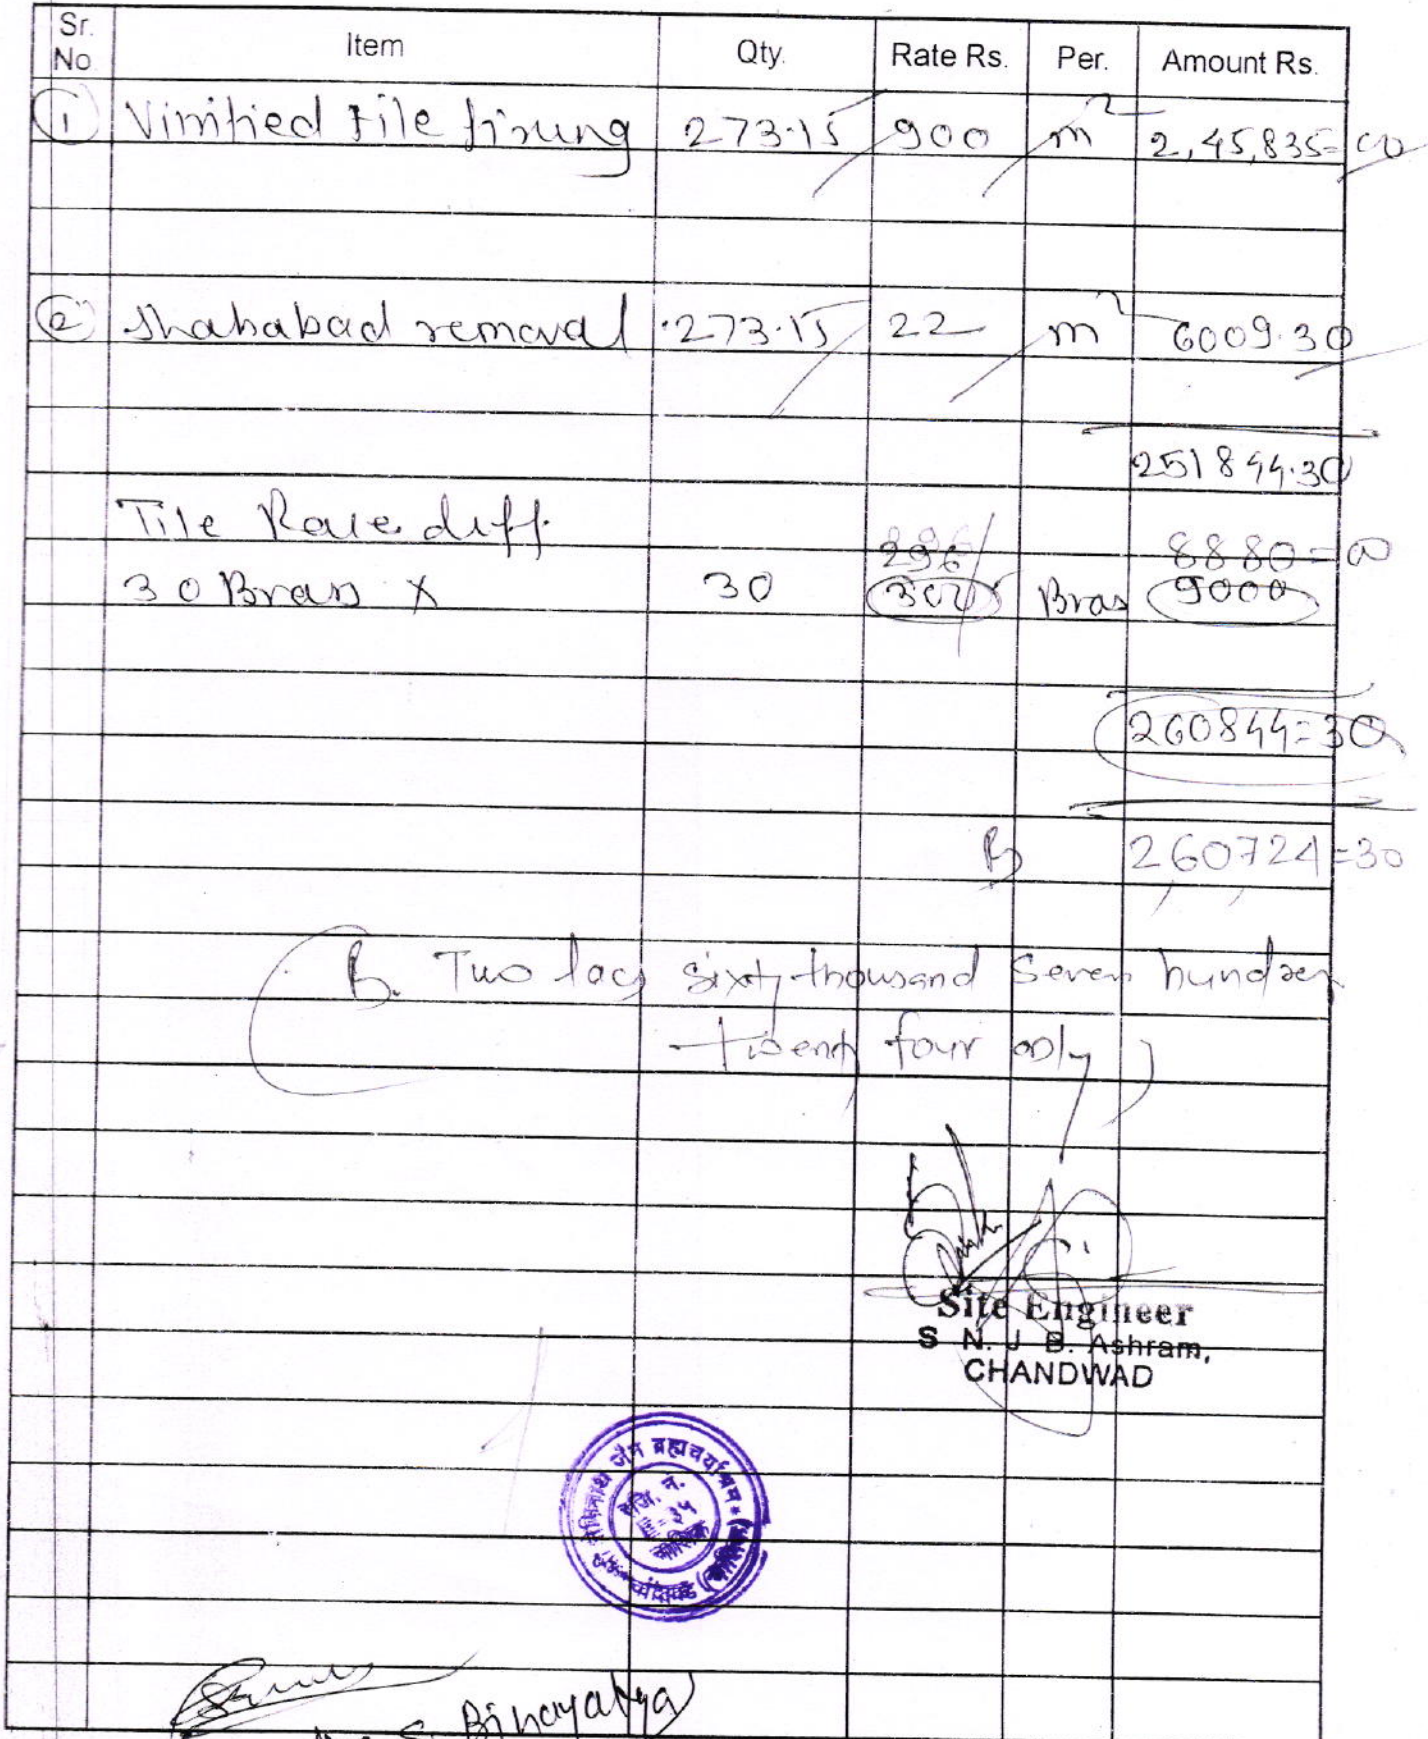 Sr. No. Item Qty. Rate Rs. Per. Amount Rs.
1 Vimified tile fixung 273.15 900 m² 2,45,835=00
2 Shahabad removal 273.15 22 m² 6009.30
251844.30
Tile Rate diff.
296 8880=00
30 Bras X 30 300 Bras 9000
260844=30
Rs 260724=30
Rs. Two lacs sixty thousand Seven hundred
twenty four only)
Site Engineer
S. N. J. B. Ashram,
CHANDWAD
जैन ब्रह्मचर्याश्रम
रजि. नं.